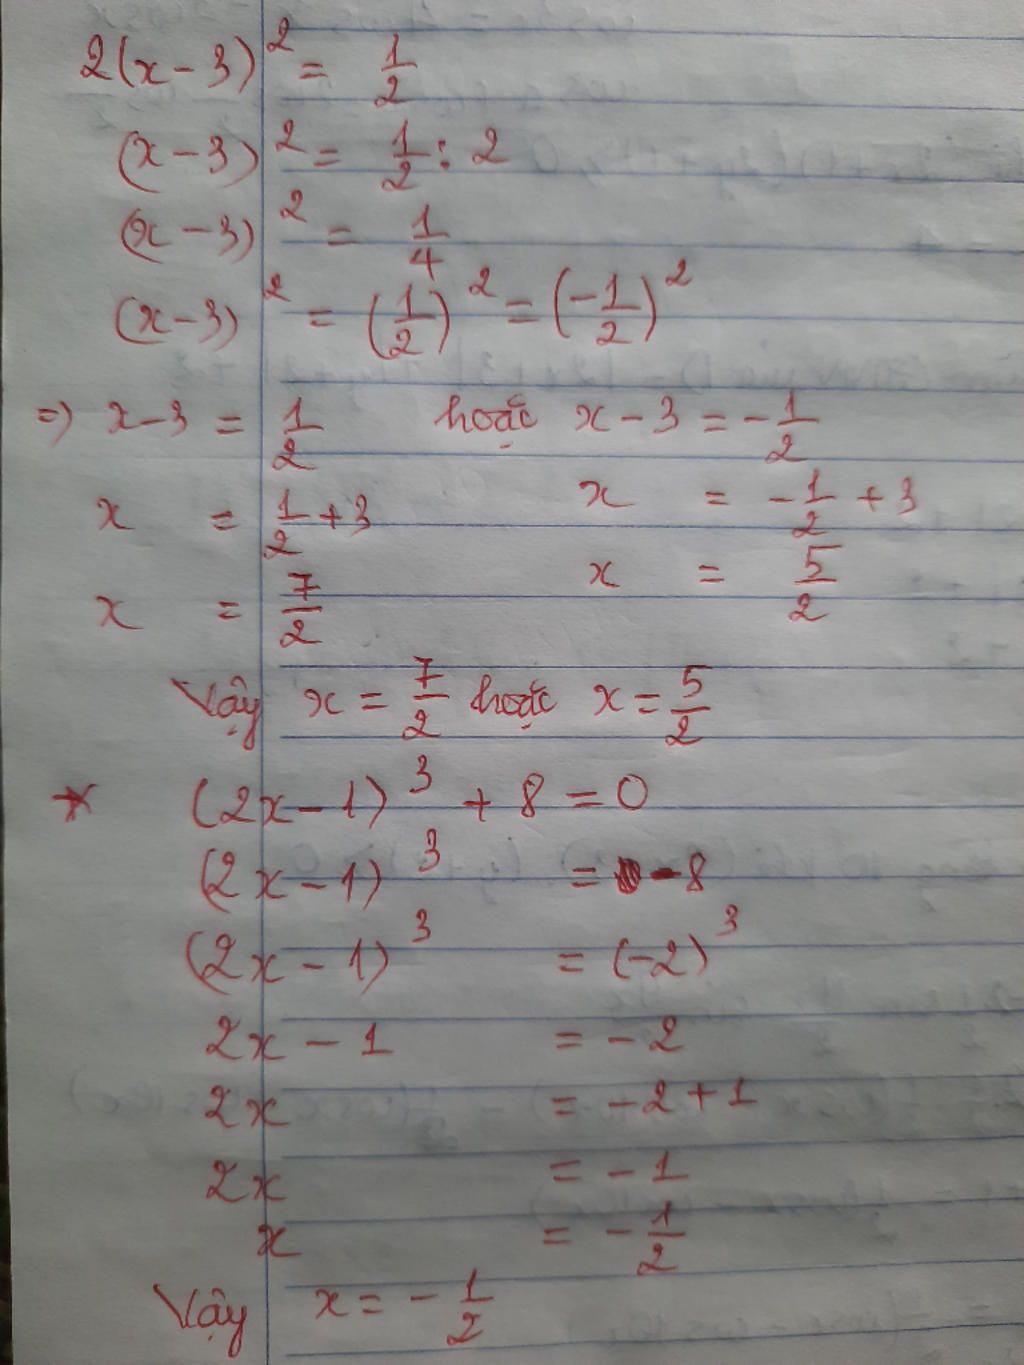 2(x-3)² = 1/2
(x-3)² = 1/2 : 2
(x-3)² = 1/4
(x-3)² = (1/2)² = (-1/2)²
=> x-3 = 1/2 hoặc x-3 = -1/2
x = 1/2 + 3 x = -1/2 + 3
x = 7/2 x = 5/2
Vậy x = 7/2 hoặc x = 5/2
* (2x-1)³ + 8 = 0
(2x-1)³ = -8
(2x-1)³ = (-2)³
2x - 1 = -2
2x = -2+1
2x = -1
x = -1/2
Vậy x = -1/2